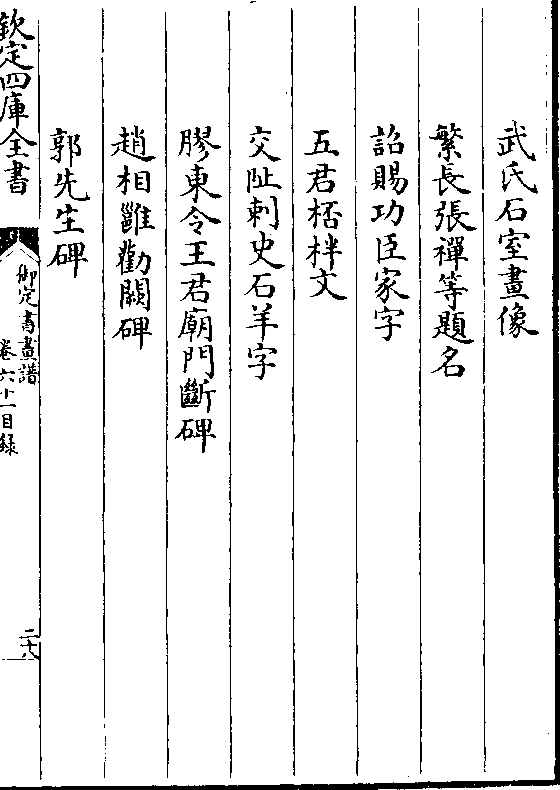 武氏石室畫像
繁長張禪等題名
詔賜功臣家字
五君桮柈文
交阯刺史石羊字
膠東令王君廟門斷碑
趙相雝勸闕碑
郭先生碑
欽定四庫全書
御定書畫譜
卷六十一目録
二十八